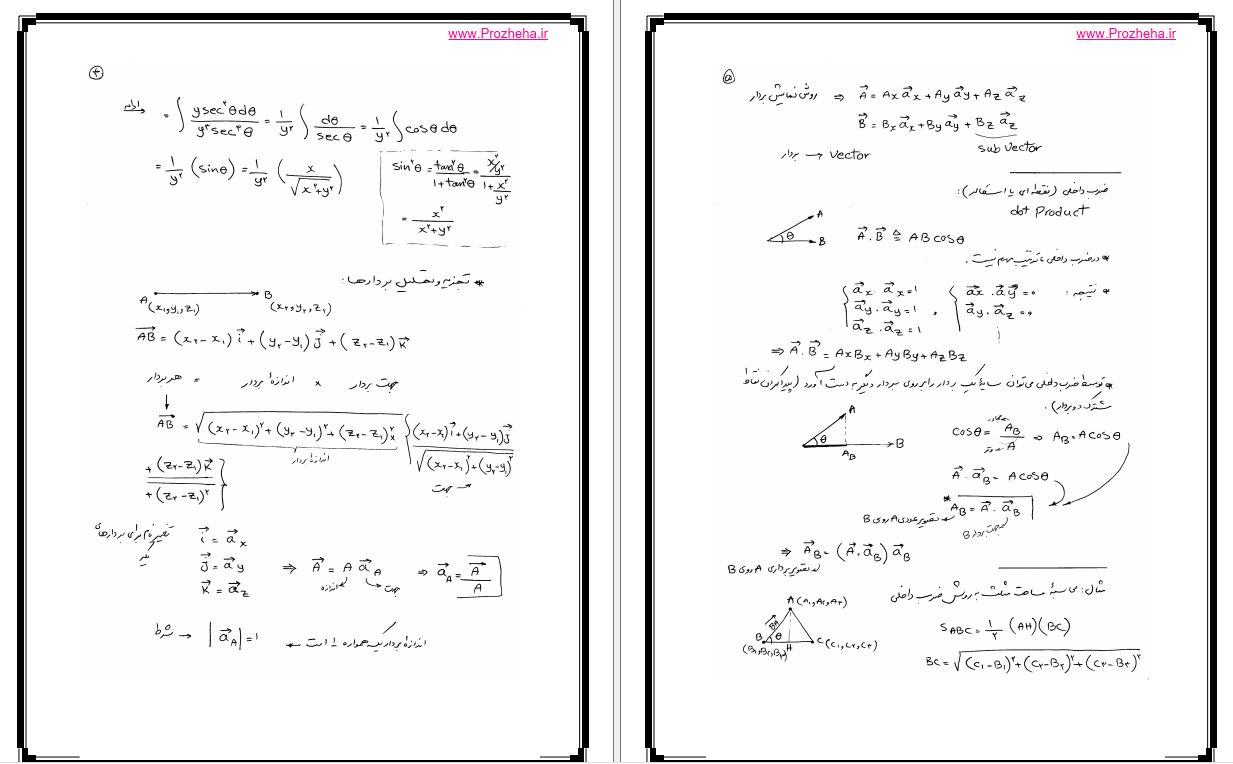 www.Prozheha.ir
۴
ادامه = ∫ y sec²θ dθ / y³ sec³θ = 1/y² ∫ dθ / secθ = 1/y² ∫ cosθ dθ
= 1/y² (sinθ) = 1/y² (x / √(x²+y²))
sin²θ = tan²θ / (1+tan²θ) = (x²/y²) / (1+x²/y²)
= x² / (x²+y²)
* تجزیه و تحلیل بردارها:
A(x₁,y₁,z₁) B(x₂,y₂,z₂)
AB = (x₂-x₁) i + (y₂-y₁) J + (z₂-z₁) K
هر بردار = اندازهٔ بردار × جهت بردار
AB = √((x₂-x₁)²+(y₂-y₁)²+(z₂-z₁)²) × { (x₂-x₁)i+(y₂-y₁)J / √((x₂-x₁)²+(y₂-y₁)²
اندازهٔ بردار
جهت
+(z₂-z₁)K / +(z₂-z₁)² }
تغییر نام برای بردارهای یکه
i = a_x
J = a_y ⇒ A = A a_A ⇒ a_A = A / A
اندازه جهت
K = a_z
شرط → |a_A| = 1 اندازهٔ بردار یکه همواره 1 است *
www.Prozheha.ir
۵
روش نمایش بردار ⇒ A = Ax a_x + Ay a_y + Az a_z
B = Bx a_x + By a_y + Bz a_z
sub vector
بردار → vector
ضرب داخلی (نقطه‌ای یا اسکالر):
dot Product
A B θ
A . B ≜ AB cosθ
* در ضرب داخلی، ترتیب مهم نیست.
* نتیجه: { a_x . a_x = 1 , { a_x . a_y = 0
a_y . a_y = 1 a_y . a_z = 0
a_z . a_z = 1 ⋮
⇒ A . B = AxBx + AyBy + AzBz
* توسط ضرب داخلی می‌توان سایهٔ یک بردار را بر روی بردار دیگر به دست آورد (پیدا کردن نقاط
مشترک دو بردار).
A θ A_B B
cosθ = A_B / A ⇒ A_B = A cosθ
مجاور
وتر
A . a_B = A cosθ
* A_B = A . a_B
تصویر عددی A روی B
جهت بردار B
⇒ A_B = (A . a_B) a_B
تصویر برداری A روی B
مثال: محاسبهٔ مساحت مثلث به روش ضرب داخلی
A(A₁,A₂,A₃)
BA
B θ H C(C₁,C₂,C₃)
(B₁,B₂,B₃)
S_ABC = 1/2 (AH)(BC)
BC = √((C₁-B₁)²+(C₂-B₂)²+(C₃-B₃)²)